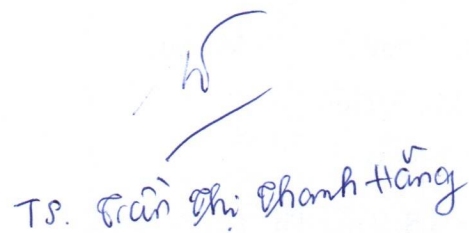 TS. Trần Thị Thanh Hằng